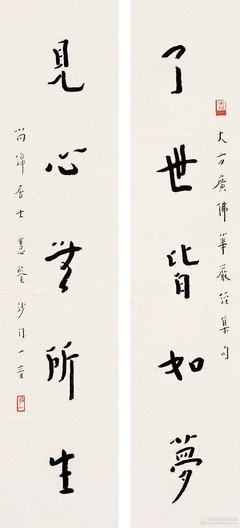 大方廣佛華嚴經集句
了世皆如夢
見心無所生
尚綿居士慧鑒 沙門一音